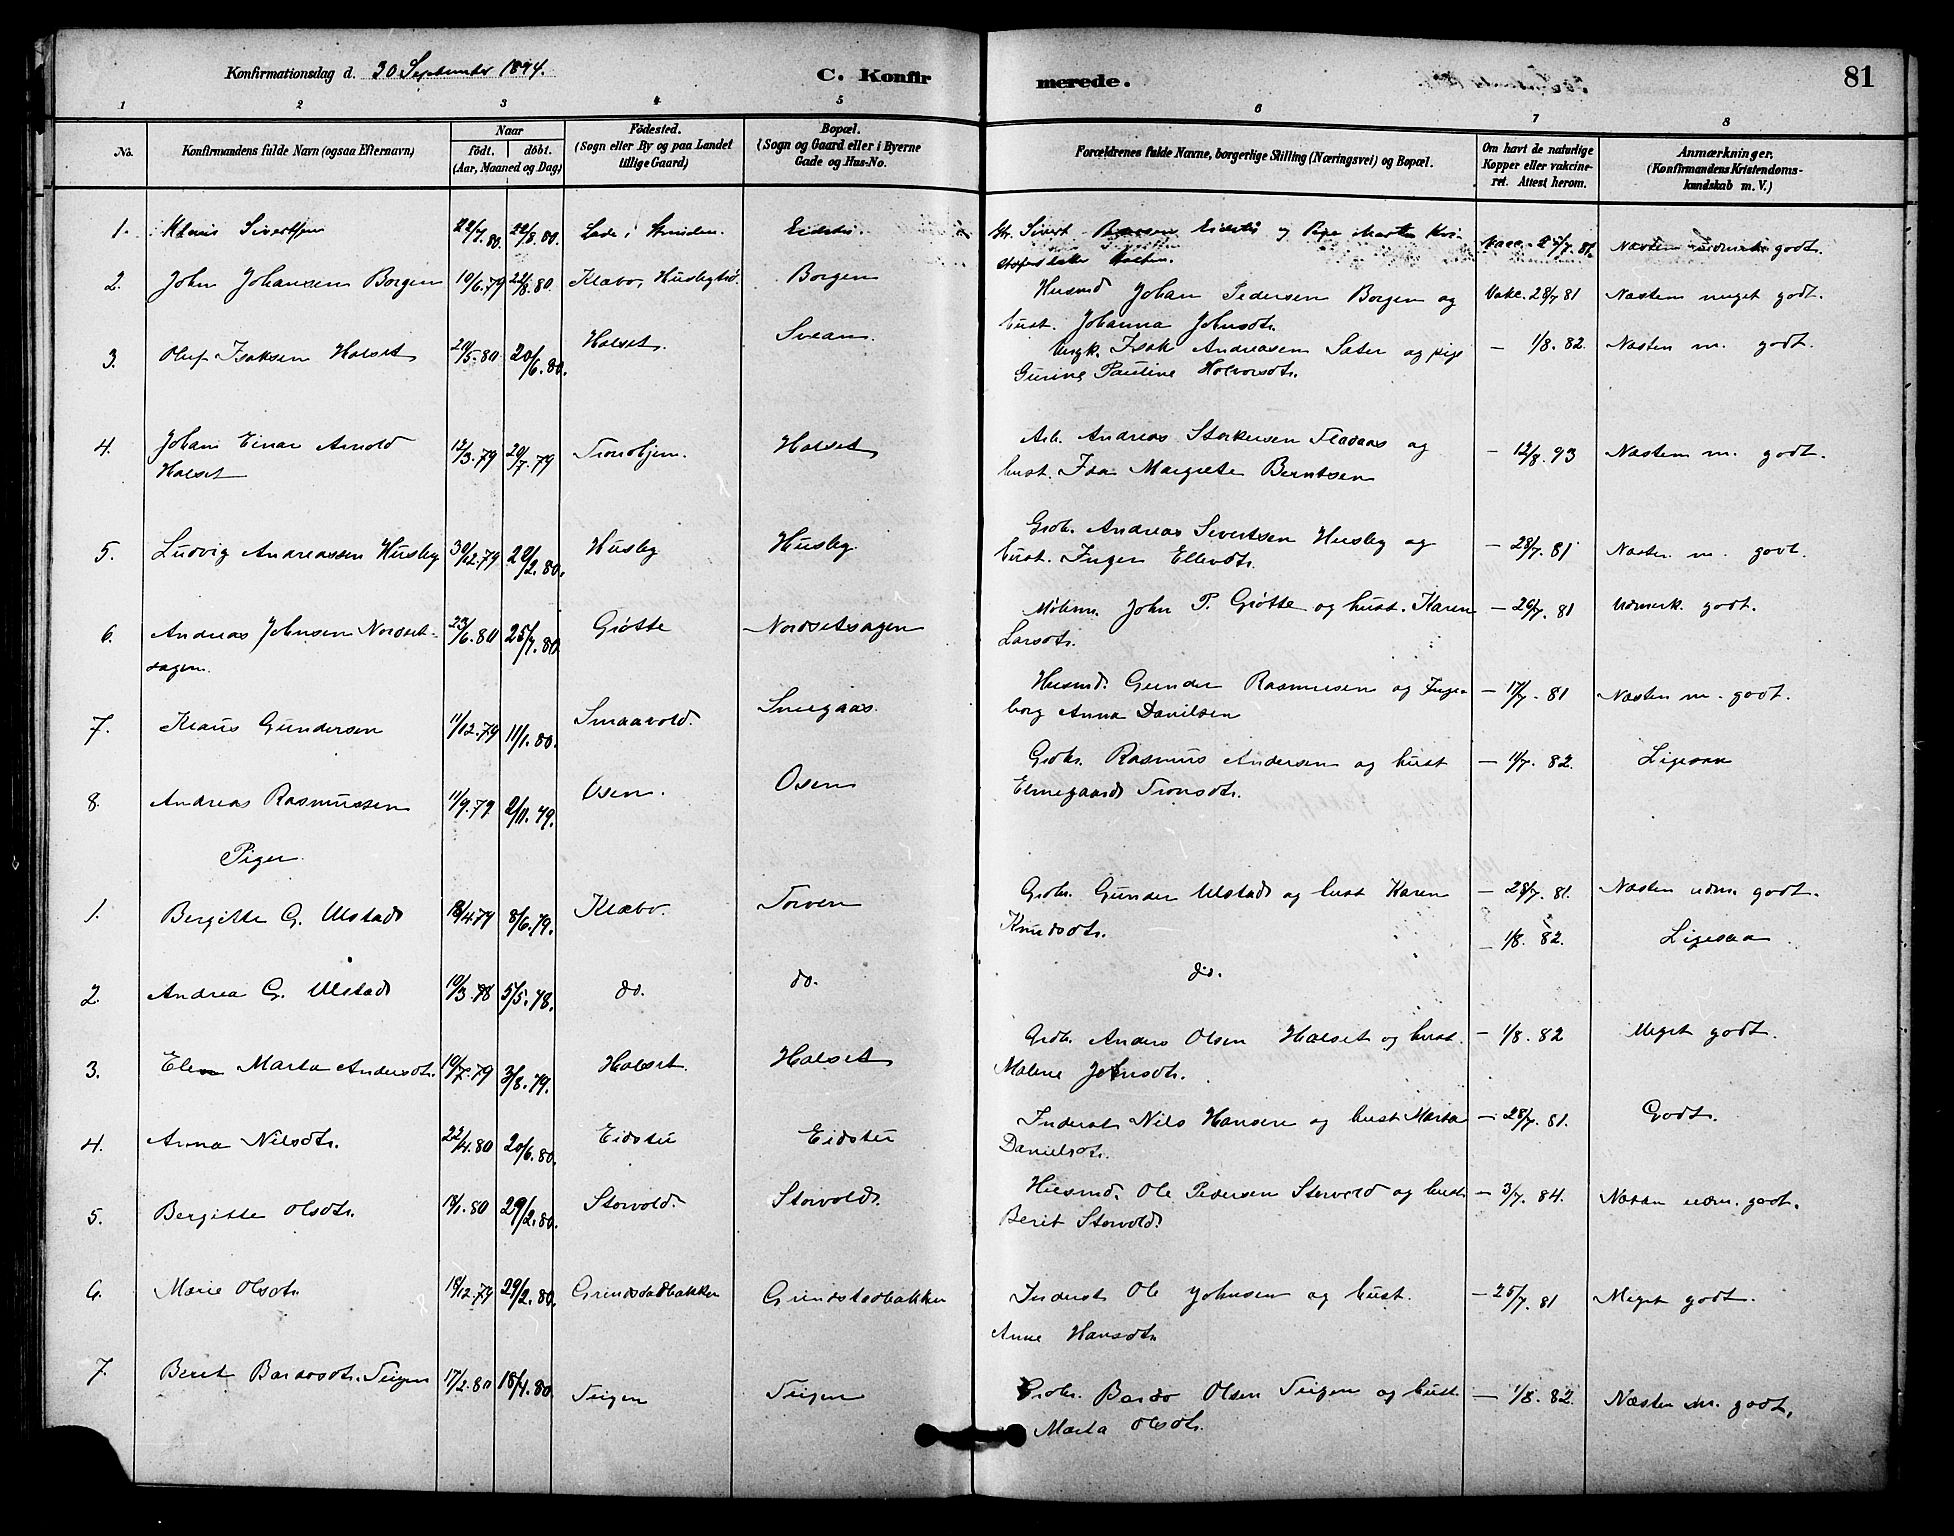 Konfirmationsdag d. 30 September 1894. C. Konfirmerede. 81
1 2 3 4 5 6 7 8
No. Konfirmandens fulde Navn (ogsaa Efternavn) Naar født. døbt. (Aar, Maaned og Dag) Fødested. (Sogn eller By og paa Landet tillige Gaard) Bopæl. (Sogn og Gaard eller i Byerne Gade og Hus-No. Forældrenes fulde Navne, borgerlige Stilling (Næringsvei) og Bopæl. Om havt de naturlige Kopper eller vakcineret. Attest herom. Anmærkninger. (Konfirmandens Kristendomskundskab m. V.)
1. Klaus Sivertsen 22/7 80. 22/8. 80. Lade i Strinden. Eidstu. Sivert Eidstu og Pige Marta Vacc. 25/7. 81. Næsten udmerk. godt.
2. John Johansen Borgen 10/6. 79 22/8. 80. Klæbo, Borgen Husmd Johan Pedersen Borgen og Vakc. 28/7 81 Næsten meget godt.
hust. Johanna Johnsdtr.
3. Oluf Isaksen Halset 20/6. 80. Halset. Svean Ungk. Isak Andreasen Sæter og pige — 1/8. 82. Næsten m. godt.
Gurine Pauline Halvorsdtr.
4. Johan Einar Arnold 12/3. 79 20/7. 79 Trondhjem. Halset Arb. Andreas Storkersen Flaaaas og — 12/8. 93 Næsten m. godt.
Halset hust. Margrete Berntsen
5. Ludvig Andreassen Husby 30/12. 79 29/2. 80. Husby Husby. Grdbr. Andreas Sivertsen Husby og — 28/7. 81 Næsten m. godt.
hust. Inger Ellevdtr.
6. Andreas Johnsen Nordset- 23/6. 80 25/7. 80 Grøtte Nordsetsagen Møllem. John P. Grøtte og hust. Karen — 26/7. 81 Udmerk. godt.
sagen. Larsdtr.
7. Klaus Gundersen 11/12. 79 11/1. 80. Smaavold. Husmd. Gunder Rasmussen og Inge- — 17/7. 81 Næsten m. godt.
borg Anna Danilsen
8. Andreas Rasmussen 11/9. 79 2/11. 79. Osen. Osen Grdbr. Rasmus Andersen og hust — 82. Ligesaa
Elmegaard Tronsdtr.
Piger.
1. Bergitte G. Ulstad 18/4 79 8/6. 79. Klæbo. Torven Grdbr. Gunder Ulstad og hust Karen — 28/7. 81. Næsten udm. godt.
Knudsdtr.
2. Andrea G. Ulstad 10/3. 78 5/5. 78. do. do. do. — 1/8. 82. Ligesaa.
3. Elen Marta Andersdtr. 10/7. 79 3/8. 79. Halset. Halset Grdbr. Anders Olsen Halset og hust. — 1/8. 82 Meget godt.
Malene Johnsdtr.
4. Anna Nilsdtr. 22/4. 80 20/6. 80. Eidstu Eidstu Inderst Nils Hansen og hust Marta — 28/7. 81. Godt.
Danielsdtr.
5. Bergitte Olsdtr. 80 29/2. 80. Storvold. Storvold. Husmd. Ole Pedersen Storvold og hust. — 3/7. 84. Næsten udm. godt.
Berit Storvold.
6. Marie Olsdtr. 18/12. 79 29/2. 80. Grindstadbakken Grindstadbakken Inderst Ole Johnsen og hust. — 25/7. 81 Meget godt.
Anne Hansdtr.
7. Berit Bardosdtr. Teigen 17/2. 80 18/4. 80. Teigen Teigen Grdbr. Bardo Olsen Teigen og hust — 1/8. 82. Næsten m. godt.
Marta Olsdtr.